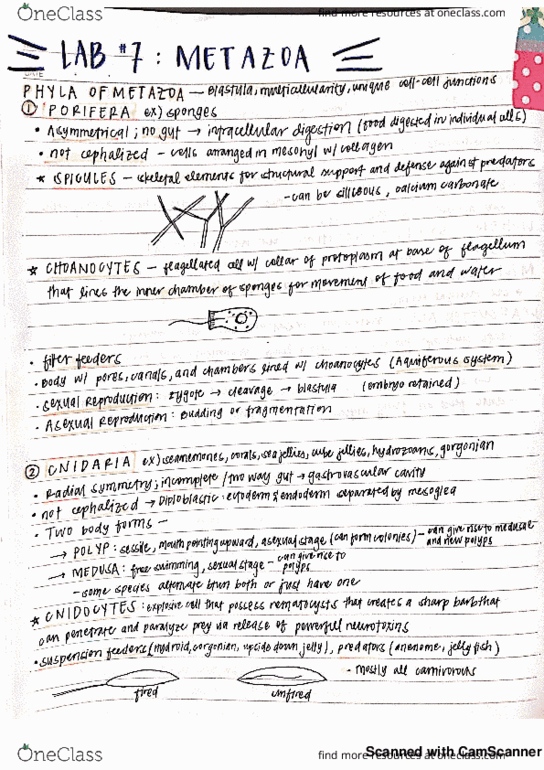 OneClass
find more resources at oneclass.com
LAB #7: METAZOA
DATE
PHYLA OF METAZOA — blastula, multicellularity, unique cell-cell junctions
① PORIFERA ex) sponges
• Asymmetrical; no gut → intracellular digestion (food digested in individual cells)
• not cephalized – cells arranged in mesohyl w/ collagen
* SPICULES — skeletal elements for structural support and defense against predators
- can be siliceous, calcium carbonate
* CHOANOCYTES — flagellated cell w/ collar of protoplasm at base of flagellum
that lines the inner chamber of sponges for movement of food and water
• filter feeders
• Body w/ pores, canals, and chambers lined w/ choanocytes (Aquiferous system)
• Sexual Reproduction: zygote → cleavage → blastula (embryo retained)
• Asexual Reproduction: Budding or fragmentation
② CNIDARIA ex) sea anemones, corals, sea jellies, cube jellies, hydrozoans, gorgonian
• Radial symmetry; incomplete / two way gut → gastrovascular cavity
• not cephalized → Diploblastic: ectoderm & endoderm separated by mesoglea
• Two body forms —
→ POLYP: sessile, mouth pointing upward, asexual stage (can form colonies) — can give rise to medusae
and new polyps
→ MEDUSA: free swimming, sexual stage — can give rise to
polyps
- some species alternate btwn both or just have one
* CNIDOCYTES: explosive cell that possess nematocysts that creates a sharp barb that
can penetrate and paralyze prey via release of powerful neurotoxins
• suspension feeders (hydroid, gorgonian, upside down jelly), predators (anenome, jelly fish)
• mostly all carnivorous
fired
unfired
OneClass
find more resources at oneclass.com
Scanned with CamScanner